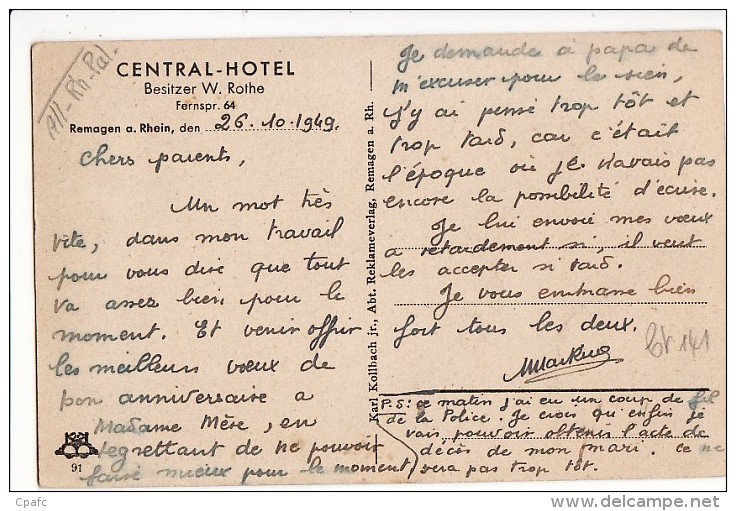 All-Rh-Pal.
CENTRAL-HOTEL
Besitzer W. Rothe
Fernspr. 64
Remagen a. Rhein, den 26. 10. 1949.
Chers parents,
Un mot très
vite, dans mon travail
pour vous dire que tout
va assez bien pour le
moment. Et venir offrir
les meilleurs vœux de
bon anniversaire à
Madame Mère, en
regrettant de ne pouvoir
faire mieux pour le moment
91
Karl Kollbach jr., Abt. Reklameverlag, Remagen a. Rh.
Je demande à papa de
m'excuser pour le sien,
j'y ai pensé trop tôt et
trop tard, car c'était
l'époque où je n'avais pas
encore la possibilité d'écrire.
Je lui envoie mes vœux
à retardement si, il veut
les accepter si tard.
Je vous embrasse bien
fort tous les deux.
P.S: ce matin j'ai eu un coup de fil
de la Police. Je crois qu'enfin je
vais pouvoir obtenir l'acte de
décès de mon mari. Ce ne
sera pas trop tôt.
Cpafc
© delcampe.net